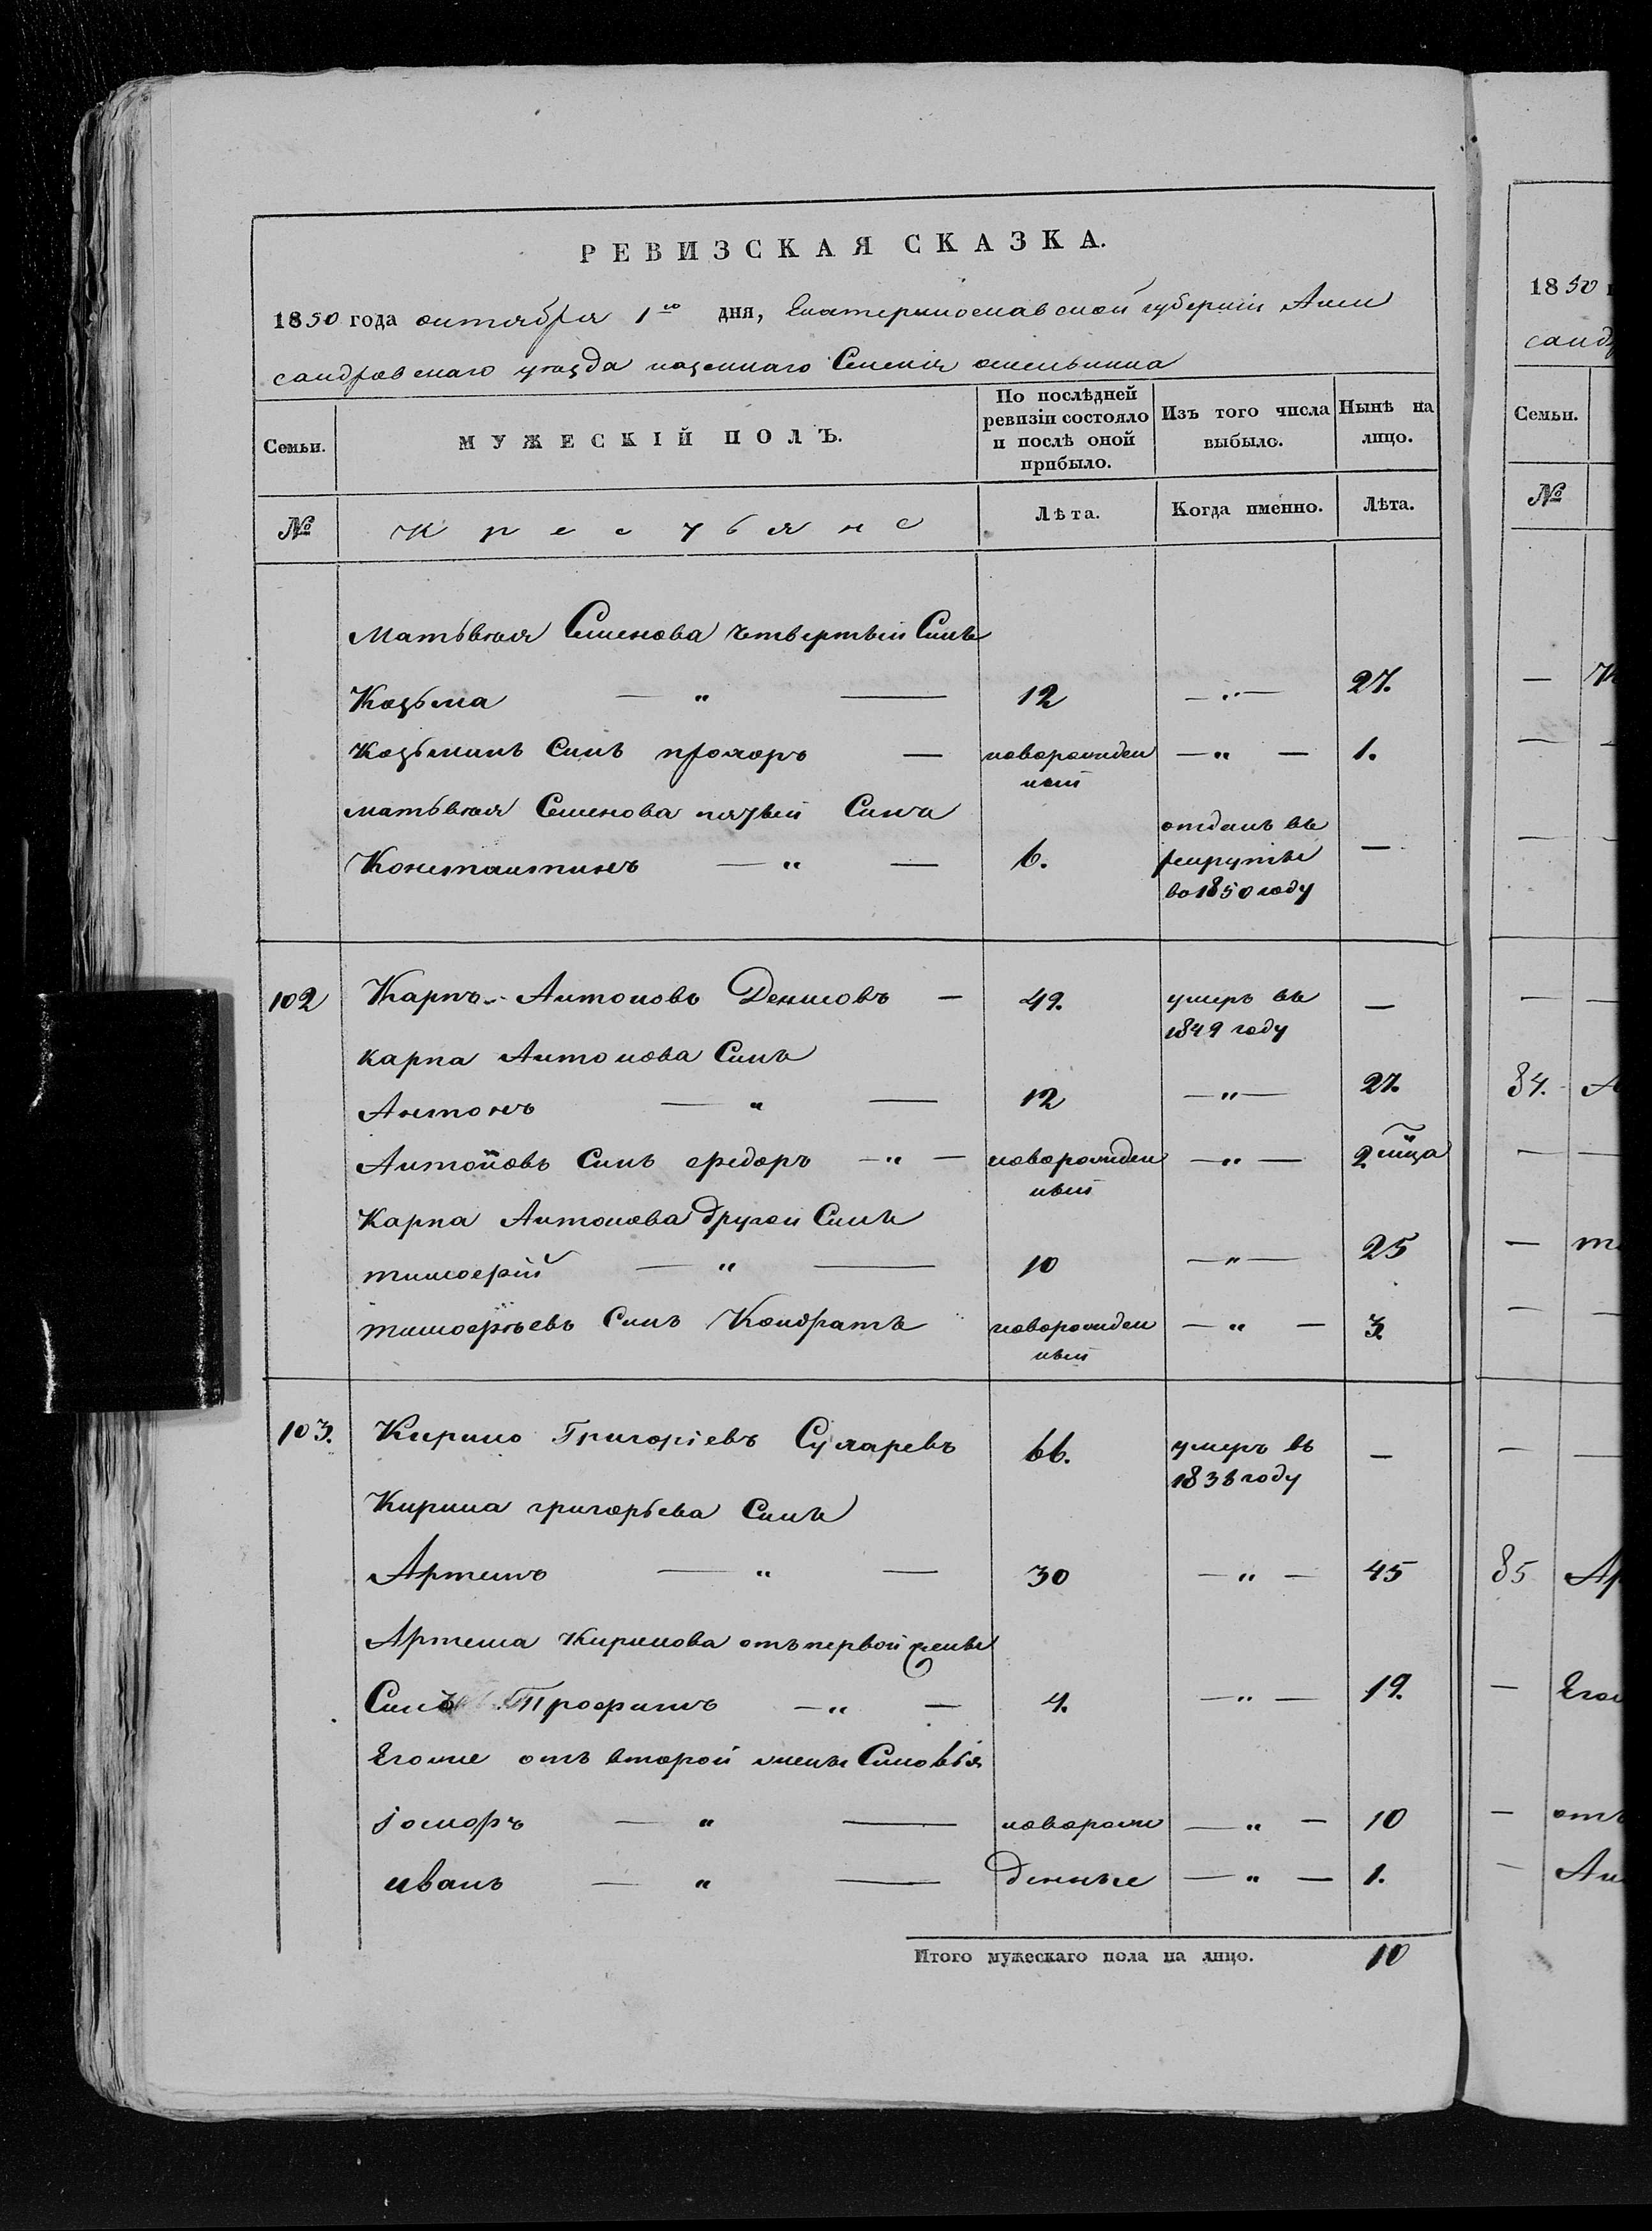 РЕВИЗСКАЯ СКАЗКА.
1850 года октября 1го дня, Екатеринославской губерніи Алек
сандровскаго уѣзда казеннаго Селенія
Семьи.
МУЖЕСКІЙ ПОЛЪ.
По послѣдней ревизіи состояло и послѣ оной прибыло.
Изъ того числа выбыло.
Нынѣ на лицо.
№
Крестьяне
Лѣта.
Когда именно.
Лѣта.
Матьвѣя Семенова четвертый Сынъ
Козьма — " — 12 — " — 27.
Козьминъ Сынъ прохоръ — новорожден ный — " — 1.
матьвѣя Семенова пятый Сынъ
Константинъ — " — 6. отданъ въ рекруты во 1850 году —
102 Карпъ Антоновъ Денисовъ — 49. умеръ въ 1849 году —
карпа Антонова Сынъ
Антонъ — " — 12 — " — 27.
Антоновъ Сынъ федоръ — " — новорожден ный — " — 2 мца
Карпа Антонова другой Сынъ
тимофей — " — 10 — " — 25
тимофѣевъ Сынъ Кондратъ новорожден ный — " — 3.
103. Кирило Григоріевъ Сухаревъ 66. умеръ въ 1838 году —
Кирила григорьева Сынъ
Артемъ — " — 30 — " — 45
Артема Кирилова отъ первой жены
Сынъ Трофимъ — " — 4. — " — 19.
Егоже отъ второй жены Сыновья
— " — новорож — " — 10
иванъ — " — денные — " — 1.
Итого мужескаго пола на лицо. 10
1850
санд
Семьи.
№
84.
85
Его
отъ